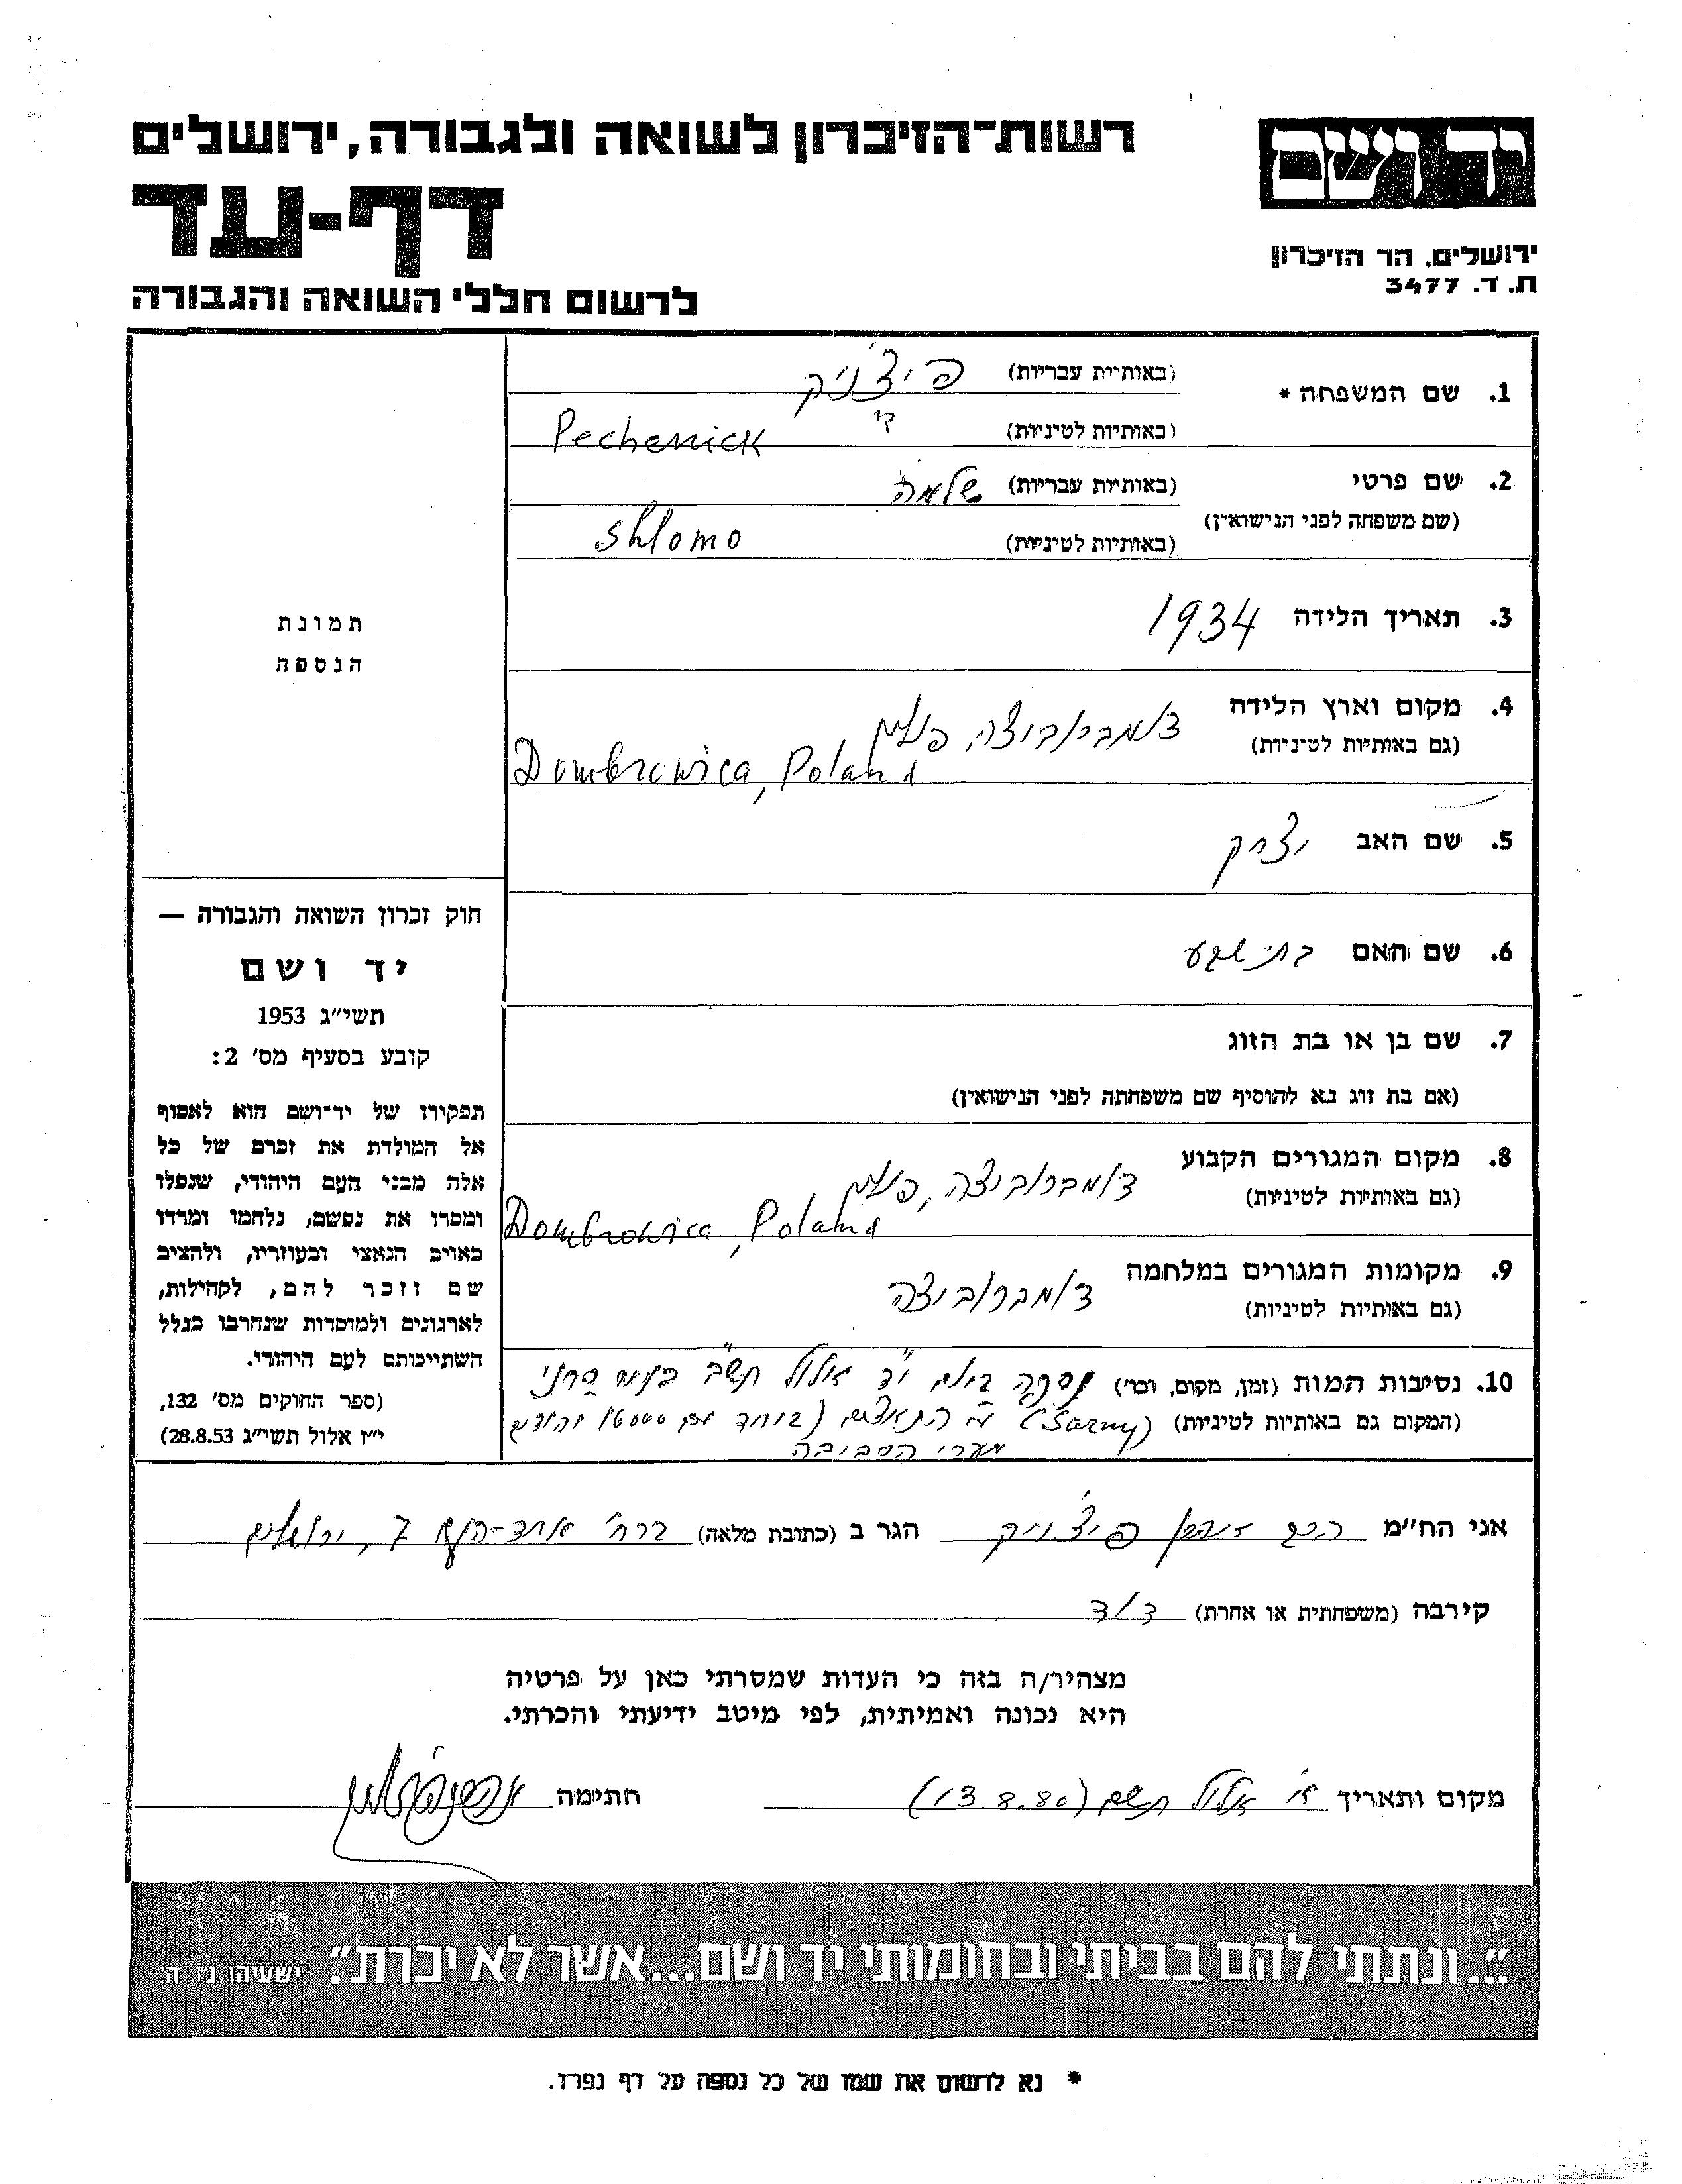 רשות־הזיכרון לשואה ולגבורה, ירושלים
יד ושם
דף-עד
ירושלים, הר הזיכרון
ת.ד. 3477
לרשום חללי השואה והגבורה
1. שם המשפחה * (באותיות עבריות) פיצ'ניק
(באותיות לטיניות) Pechenick
2. שם פרטי (באותיות עבריות) שלמה
(שם משפחה לפני הנישואין)
(באותיות לטיניות) Shlomo
3. תאריך הלידה 1934
4. מקום וארץ הלידה דומברוביצה, פולין
(גם באותיות לטיניות) Dombrowica, Poland
5. שם האב יצחק
6. שם האם בת-שבע
7. שם בן או בת הזוג
(אם בת זוג נא להוסיף שם משפחתה לפני הנישואין)
8. מקום המגורים הקבוע דומברוביצה, פולין
(גם באותיות לטיניות) Dombrowica, Poland
9. מקומות המגורים במלחמה דומברוביצה
(גם באותיות לטיניות)
10. נסיבות המות (זמן, מקום, וכו') נספה ביום י"ד אלול תש"ב סרני
(המקום גם באותיות לטיניות) (Sarny) ע"י הנאצים (ביחד עם 16000 יהודים
מערי הסביבה
תמונת
הנספה
חוק זכרון השואה והגבורה —
יד ושם
תשי״ג 1953
קובע בסעיף מס׳ 2:
תפקידו של יד־ושם הוא לאסוף
אל המולדת את זכרם של כל
אלה מבני העם היהודי, שנפלו
ומסרו את נפשם, נלחמו ומרדו
באויב הנאצי ובעוזריו, ולהציב
שם וזכר להם, לקהילות,
לארגונים ולמוסדות שנחרבו בגלל
השתייכותם לעם היהודי.
(ספר החוקים מס׳ 132,
י״ז אלול תשי״ג 28.8.53)
אני הח״מ הרב פיצ'ניק הגר ב (כתובת מלאה) ברח' אחד-העם 7, ירושלים
קירבה (משפחתית או אחרת) דוד
מצהיר/ה בזה כי העדות שמסרתי כאן על פרטיה
היא נכונה ואמיתית, לפי מיטב ידיעתי והכרתי.
מקום ותאריך א' אלול תשם (13.8.80) חתימה
״...ונתתי להם בביתי ובחומותי יד ושם...אשר לא יכרת״. ישעיהו נ״ו, ה׳
* נא לרשום את שמו של כל נספה על דף נפרד.